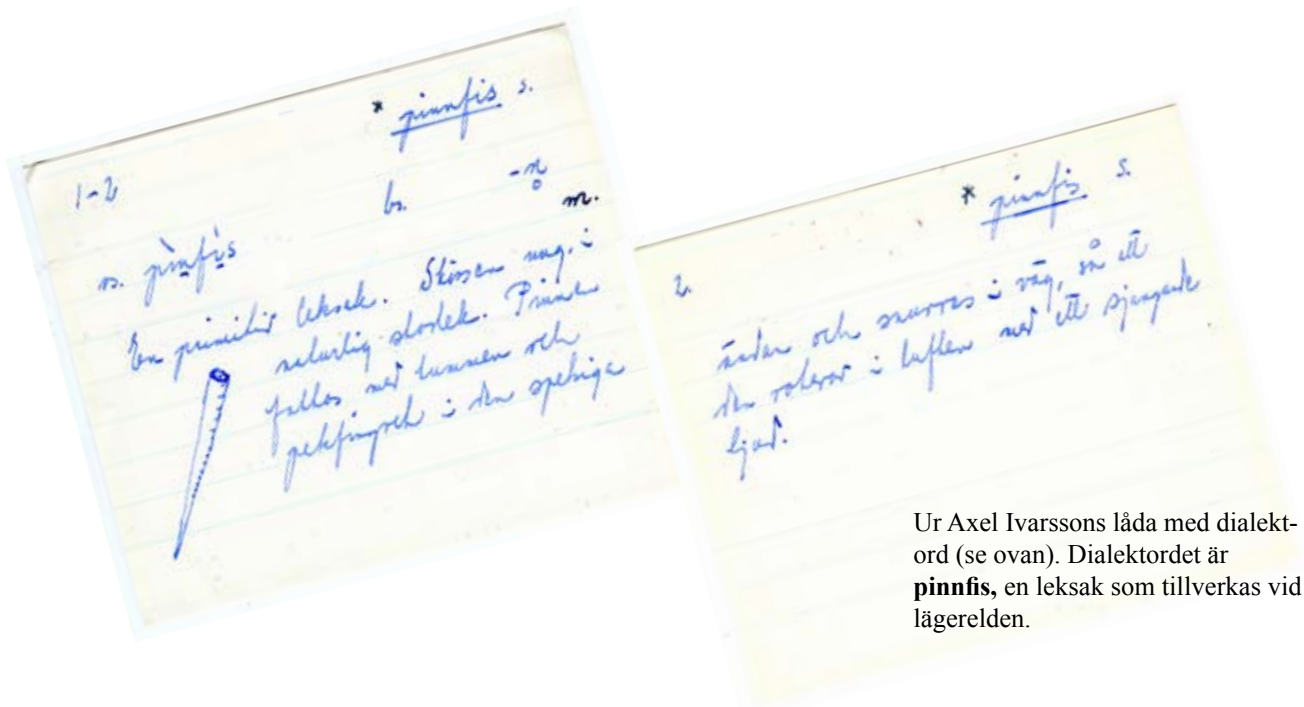 * pinnfis s.
1-2
bs. -n̥
m.
os. pìnfìs
En primitiv leksak. Skissen ung. i
naturlig storlek. Pinnen
fattas med tummen och
pekfingret i den spetsiga
* pinnfis s.
2.
ändan och snurras i väg, så att
den roterar i luften med ett sjungande
ljud.
Ur Axel Ivarssons låda med dialekt-
ord (se ovan). Dialektordet är
pinnfis, en leksak som tillverkas vid
lägerelden.